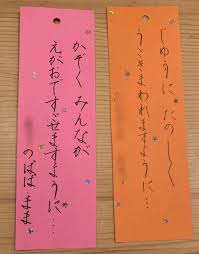 じゆうに たのしく
うごきまわれますように…
かぞく みんなが
えがおですごせますように….
のぱぱ まま